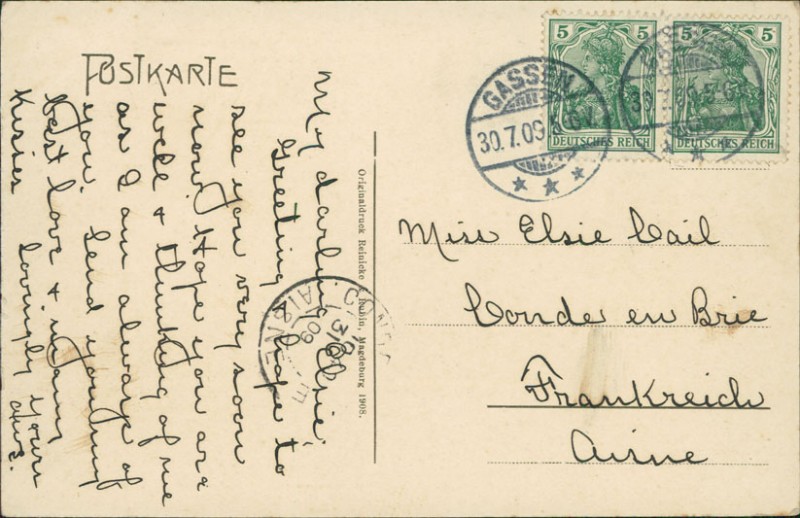 POSTKARTE
My darling Elsie,
Greeting hope to
see you very soon
now, Hope you are
well & thinking of me
as I am always of
you. Send you my
best love & many
kisses Lovingly yours
Originaldruck Reinicke & Rubin, Magdeburg 1908.
5 5
DEUTSCHES REICH
5 5
DEUTSCHES REICH
GASSEN
30.7.09
Miss Elsie Cail
Conde en Brie
Frankreich
Aisne
CONDE
AISNE
09